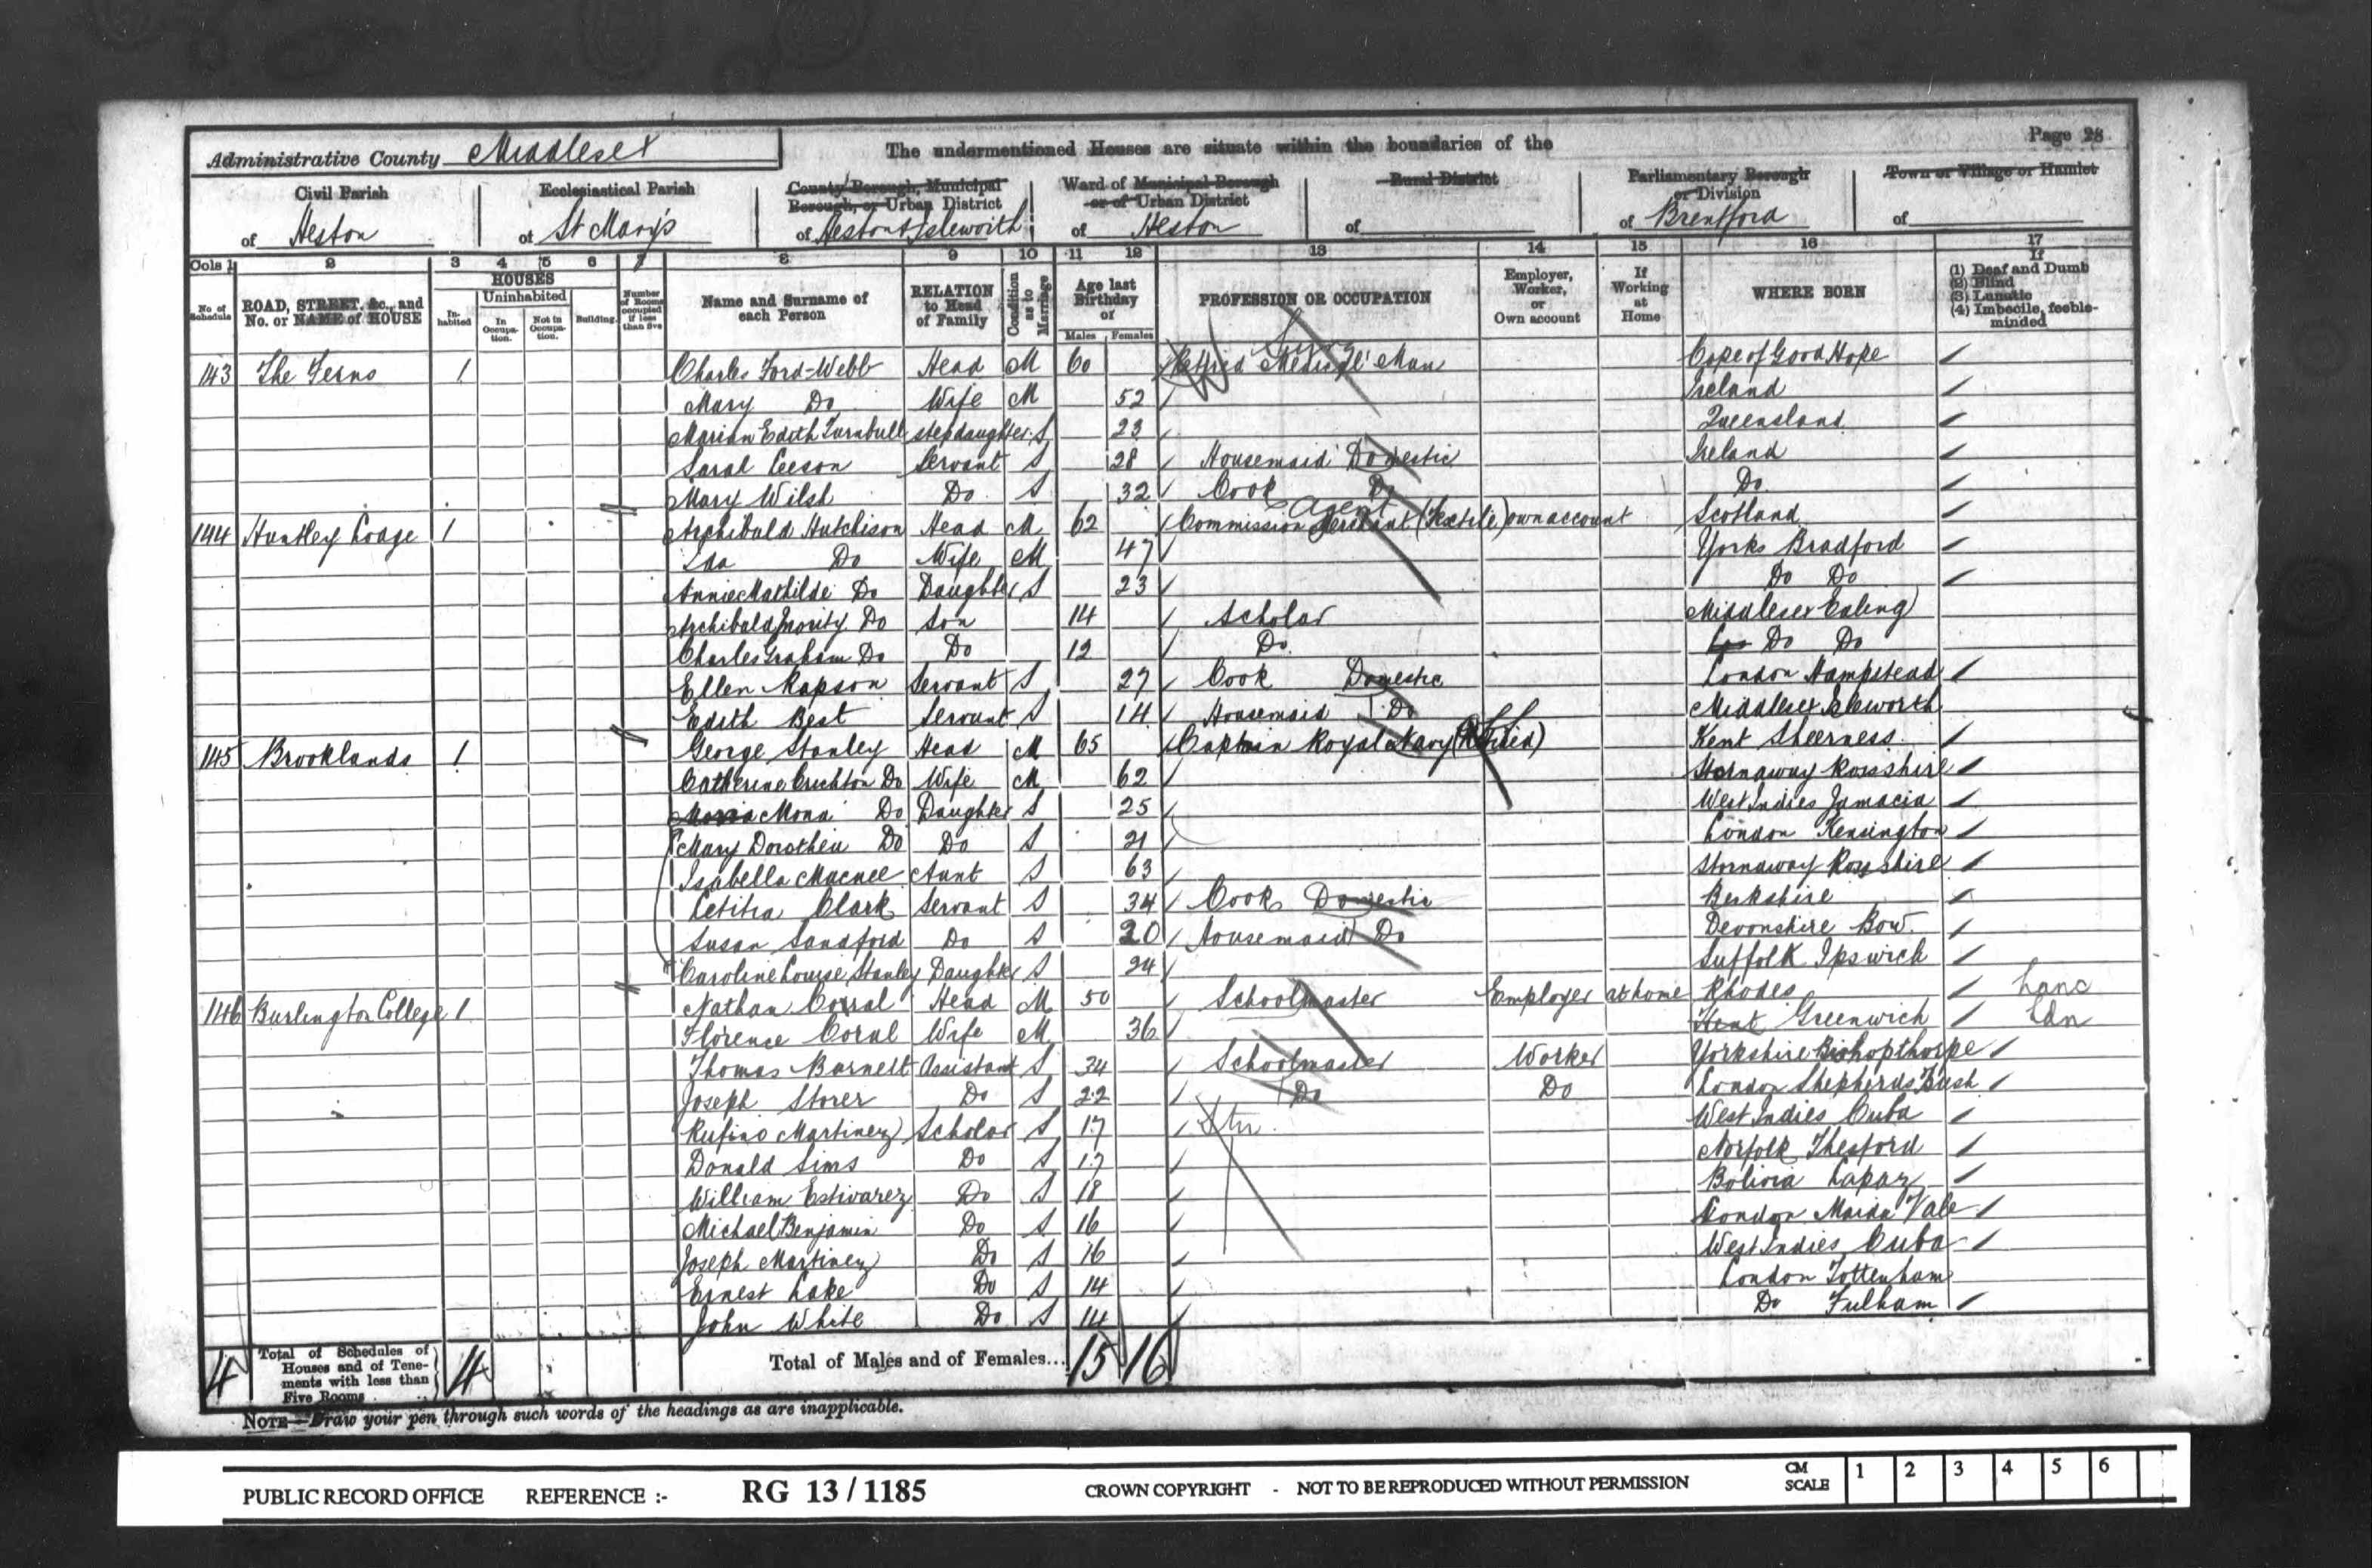 Administrative County Middlesex
The undermentioned Houses are situate within the boundaries of the
Page 28
Civil Parish of Heston
Ecclesiastical Parish of St Mary's
County Borough, Municipal Borough, or Urban District of Heston & Isleworth
Ward of Municipal Borough or of Urban District of Heston
Rural District of
Parliamentary Borough or Division of Brentford
Town or Village or Hamlet of
Cols 1 2 3 4 5 6 7 8 9 10 11 12 13 14 15 16 17
No of Schedule
ROAD, STREET, &c., and No. or NAME of HOUSE
HOUSES
Inhabited
Uninhabited
In Occupation.
Not in Occupation.
Building.
Number of Rooms occupied if less than five
Name and Surname of each Person
RELATION to Head of Family
Condition as to Marriage
Age last Birthday of
Males Females
PROFESSION OR OCCUPATION
Employer, Worker, or Own account
If Working at Home
WHERE BORN
If
(1) Deaf and Dumb
(2) Blind
(3) Lunatic
(4) Imbecile, feeble-minded
143 The Ferns 1 Charles Ford-Webb Head M 60 Retired Medical Man Cape of Good Hope
Mary Do Wife M 52 Ireland
Marian Edith Turnbull stepdaughter S 23 Queensland
Sarah Leeson Servant S 28 Housemaid Domestic Ireland
Mary Wilsh Do S 32 Cook Do Do
144 Huntley Lodge 1 Archibald Hutchison Head M 62 Commission Agent Merchant (Textile) own account Scotland
Ida Do Wife M 47 Yorks Bradford
Annie Mathilde Do Daughter S 23 Do Do
Archibald Do Son 14 Scholar Middlesex Ealing
Charles Graham Do Do 12 Do Do Do
Ellen Rapson Servant S 27 Cook Domestic London Hampstead
Edith Best Servant S 14 Housemaid Do Middlesex Isleworth
145 Brooklands 1 George Stanley Head M 65 Captain Royal Navy (Retired) Kent Sheerness
Catherine Crichton Do Wife M 62 Stornaway Rossshire
Mona Do Daughter S 25 West Indies Jamacia
Mary Dorothea Do Do S 21 London Kensington
Isabella Macnee Aunt S 63 Stornaway Rossshire
Letitia Clark Servant S 34 Cook Domestic Berkshire
Susan Sandford Do S 20 Housemaid Do Devonshire Bow
Caroline Louise Stanley Daughter S 24 Suffolk Ipswich
146 Burlington College 1 Nathan Corral Head M 50 Schoolmaster Employer at home Rhodes Lanc
Florence Coral Wife M 36 Kent Greenwich Ldn
Thomas Barnett Assistant S 34 Schoolmaster Worker Yorkshire Bishopthorpe
Joseph Storer Do S 22 Do Do London Shepherds Bush
Rufino Martinez Scholar S 17 West Indies Cuba
Donald Sims Do S 17 Norfolk Thesford
William Estivarez Do S 18 Bolivia Lapaz
Michael Benjamin Do S 16 London Maida Vale
Joseph Martinez Do S 16 West Indies Cuba
Ernest Lake Do S 14 London Tottenham
John White Do S 14 Do Fulham
4 Total of Schedules of Houses and of Tenements with less than Five Rooms 4 Total of Males and of Females... 15 16
NOTE—Draw your pen through such words of the headings as are inapplicable.
PUBLIC RECORD OFFICE REFERENCE :- RG 13/1185 CROWN COPYRIGHT - NOT TO BE REPRODUCED WITHOUT PERMISSION CM SCALE 1 2 3 4 5 6